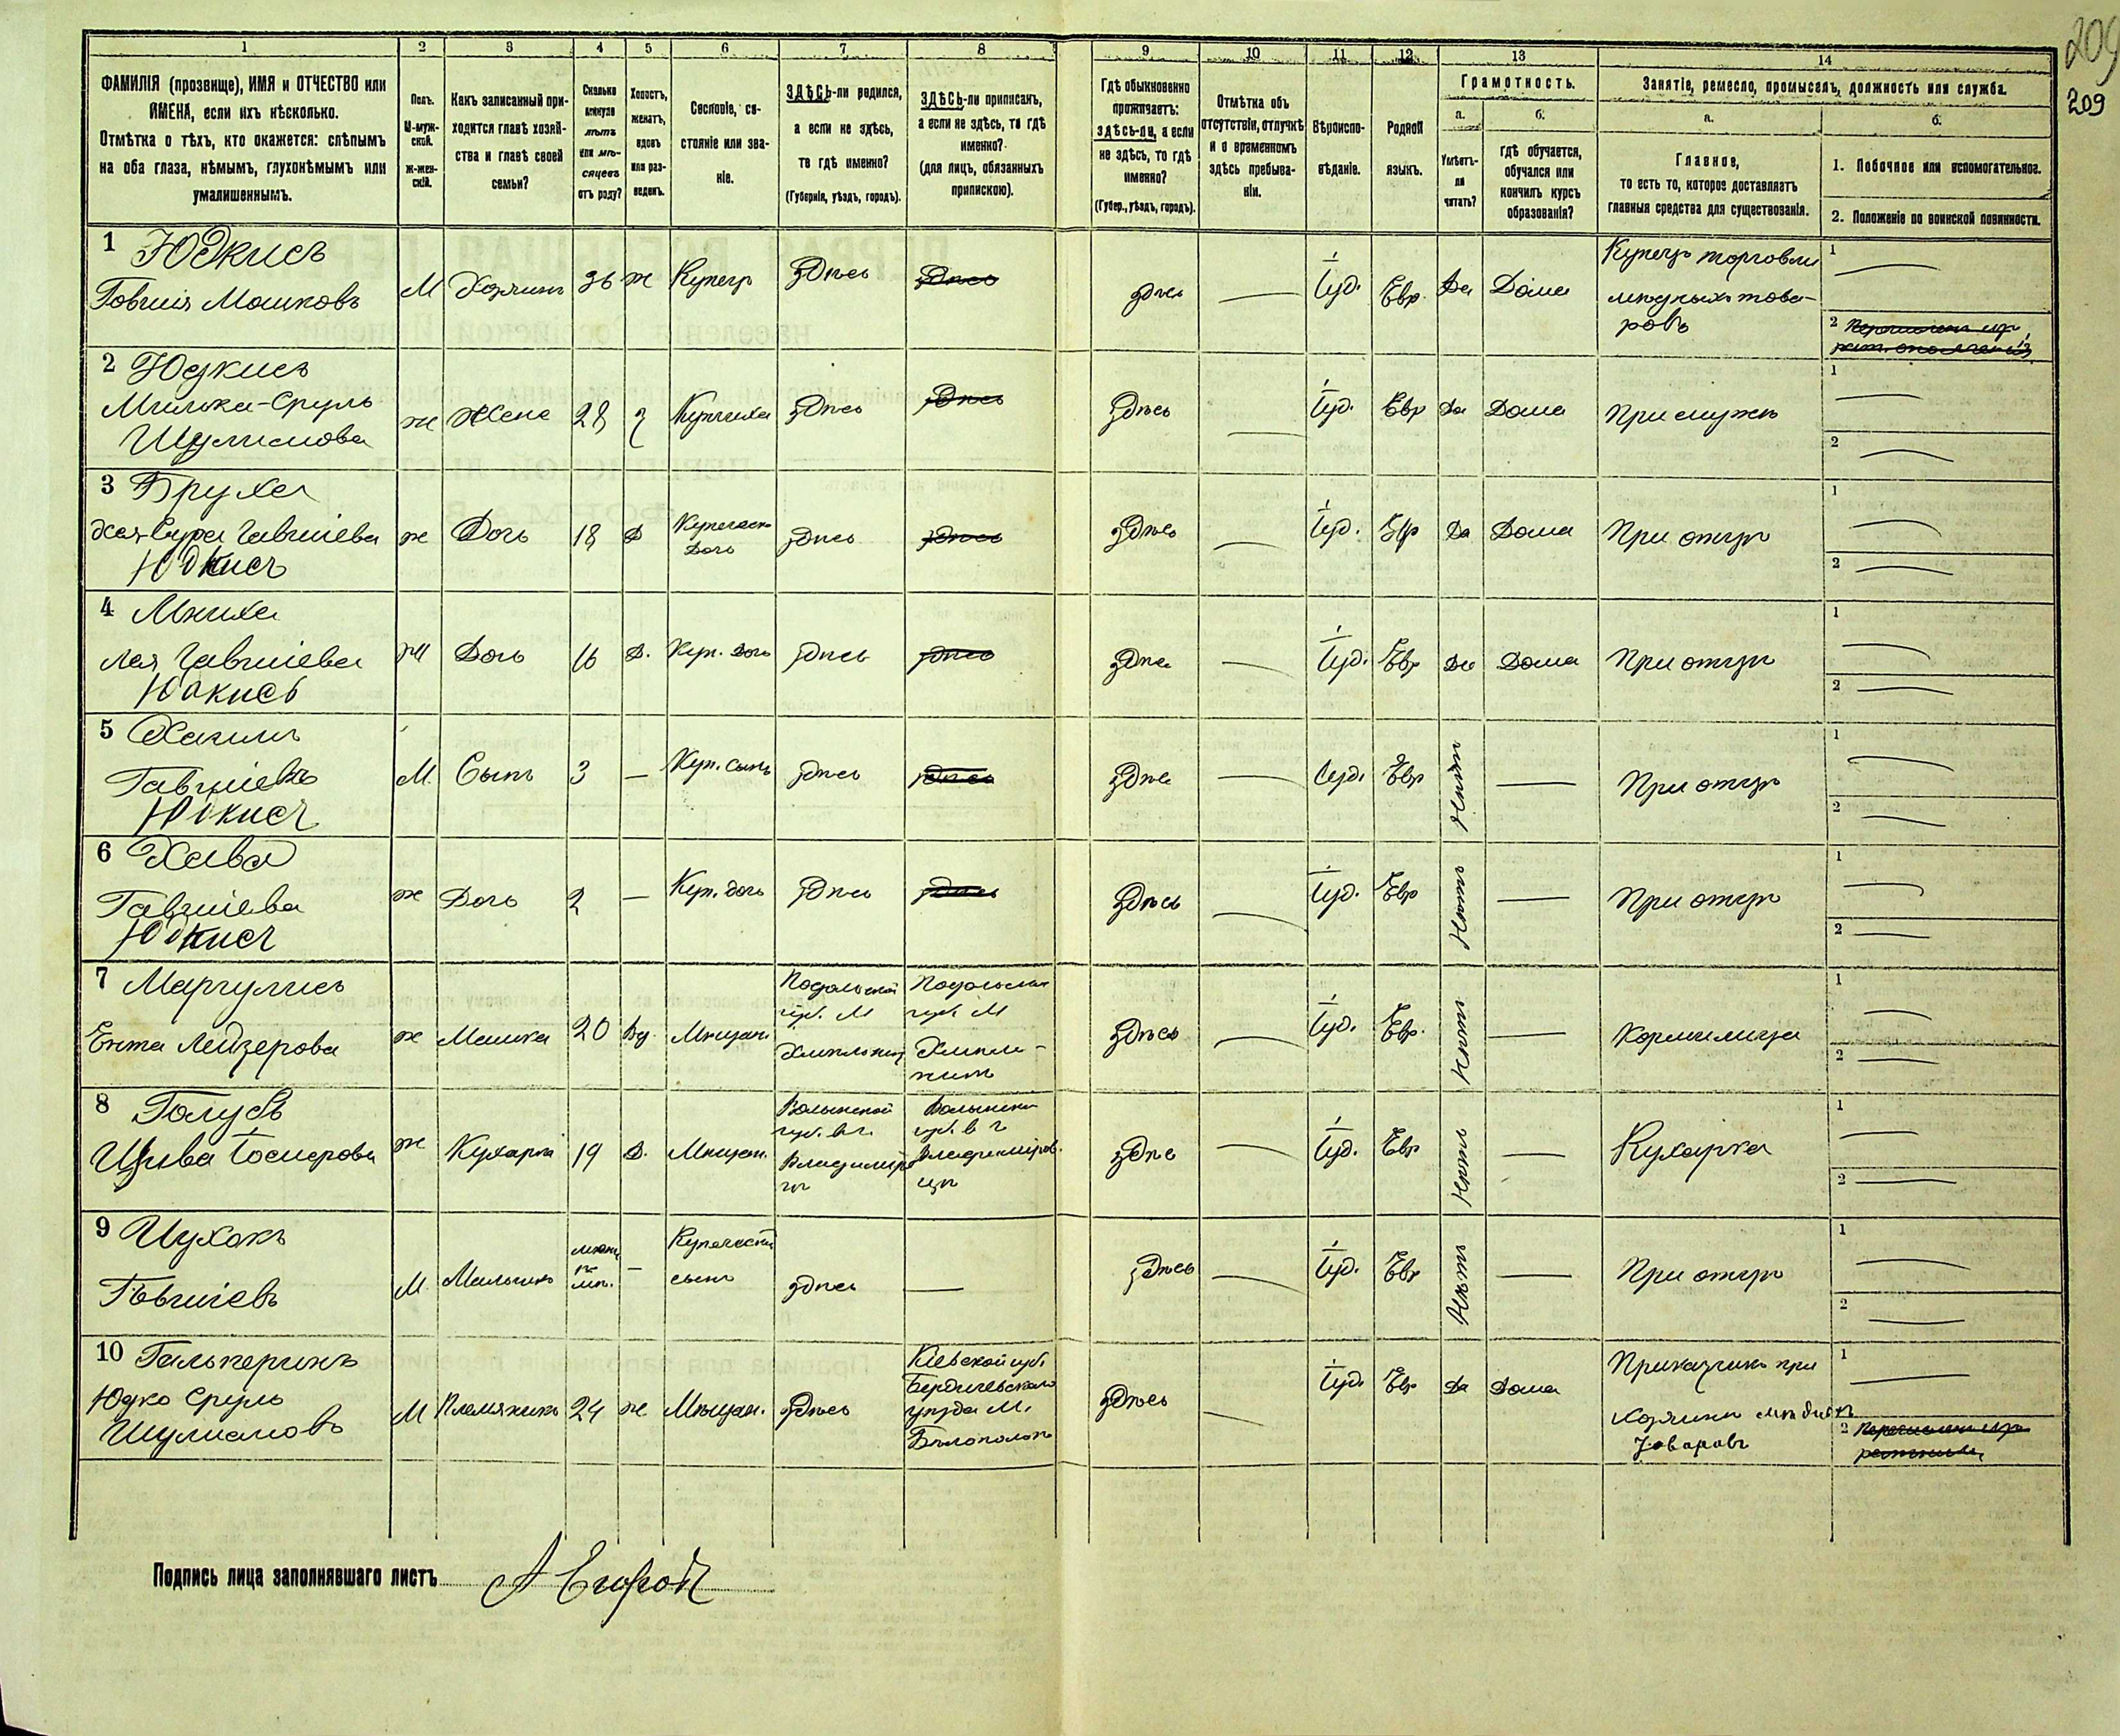 209
209
1 2 3 4 5 6 7 8 9 10 11 12 13 14
ФАМИЛІЯ (прозвище), ИМЯ и ОТЧЕСТВО или
ИМЕНА, если ихъ нѣсколько.
Отмѣтка о тѣхъ, кто окажется: слѣпымъ
на оба глаза, нѣмымъ, глухонѣмымъ или
умалишеннымъ.
Полъ.
М-муж-
ской.
Ж-жен-
скій.
Какъ записанный при-
ходится главѣ хозяй-
ства и главѣ своей
семьи?
Сколько
минуло
лѣтъ
или мѣ-
сяцевъ
отъ роду?
Холостъ,
женатъ,
вдовъ
или раз-
веденъ.
Сословіе, со-
стояніе или зва-
ніе.
ЗДѢСЬ-ли родился,
а если не здѣсь,
то гдѣ именно?
(Губернія, уѣздъ, городъ).
ЗДѢСЬ-ли приписанъ,
а если не здѣсь, то гдѣ
именно?
(для лицъ, обязанныхъ
припискою).
Гдѣ обыкновенно
проживаетъ:
здѣсь-ли, а если
не здѣсь, то гдѣ
именно?
(Губер., уѣздъ, городъ).
Отмѣтка объ
отсутствіи, отлучкѣ
и о временномъ
здѣсь пребыва-
ніи.
Вѣроиспо-
вѣданіе.
Родной
языкъ.
Грамотность.
а.
Умѣетъ-
ли
читать?
б.
гдѣ обучается,
обучался или
кончилъ курсъ
образованія?
Занятіе, ремесло, промыселъ, должность или служба.
а.
Главное,
то есть то, которое доставляетъ
главныя средства для существованія.
б.
1. Побочное или вспомогательное.
2. Положеніе по воинской повинности.
1 Юдкисъ
Говшія Мошковъ
М Хозяинъ 36 ж Купецъ здѣсь здѣсь
здѣсь Іуд. Евр. Да Дома
Купецъ торговли
мѣдныхъ това-
ровъ
1
2
2 Юдкисъ
Шулимова
ж Жена 28 з Купчиха здѣсь здѣсь
здѣсь Іуд. Евр Да Дома При мужѣ
1
2
3 Бруха
Гавшіева
Юдкисъ
ж Дочь 18 д Купеческ.
Дочь
здѣсь здѣсь
здѣсь Іуд. Евр Да Дома При отцѣ
1
2
4
Лея Гавшіева
Юдкисъ
ж Дочь 16 д. Куп. дочь здѣсь здѣсь
здѣсь Іуд. Евр Да Дома При отцѣ
1
2
5 Хаимъ
Гавшіевъ
Юдкисъ
М Сынъ 3 — Куп. сынъ здѣсь здѣсь
здѣсь Іуд. Евр Нѣтъ — При отцѣ
1
2
6 Хава
Гавшіева
Юдкисъ
ж Дочь 2 — Куп. дочь здѣсь здѣсь
здѣсь Іуд. Евр Нѣтъ — При отцѣ
1
2
7 Маргулисъ
Ента Лейзерова
ж Мамка 20 Вд. Мѣщан.
Подольской
губ. М
Хмѣльникъ
Подольская
губ. М
Хмѣль-
никъ
здѣсь Іуд. Евр. Нѣтъ — Кормилица
1
2
8 Голубъ
ж Кухарка 19 д. Мѣщан.
Волынской
губ. въ г.
Волынской
губ. в г
здѣсь Іуд. Евр Нѣтъ — Кухарка
1
2
9 Цухокъ
Говшіевъ
М Мальчикъ — Купеческій
сынъ
здѣсь —
здѣсь Іуд. Евр Нѣтъ — При отцѣ
1
2
10 Гальперинъ
Юдко Сруль
Шулимовъ
М Племяникъ 24 ж Мѣщан. здѣсь
Кіевской губ.
Бердичевскаго
уѣзда М.
Бѣлополье
здѣсь Іуд. Евр Да Дома
Приказчикъ при
хозяинѣ мѣдныхъ
товаровъ
1
2
Подпись лица заполнявшаго листъ